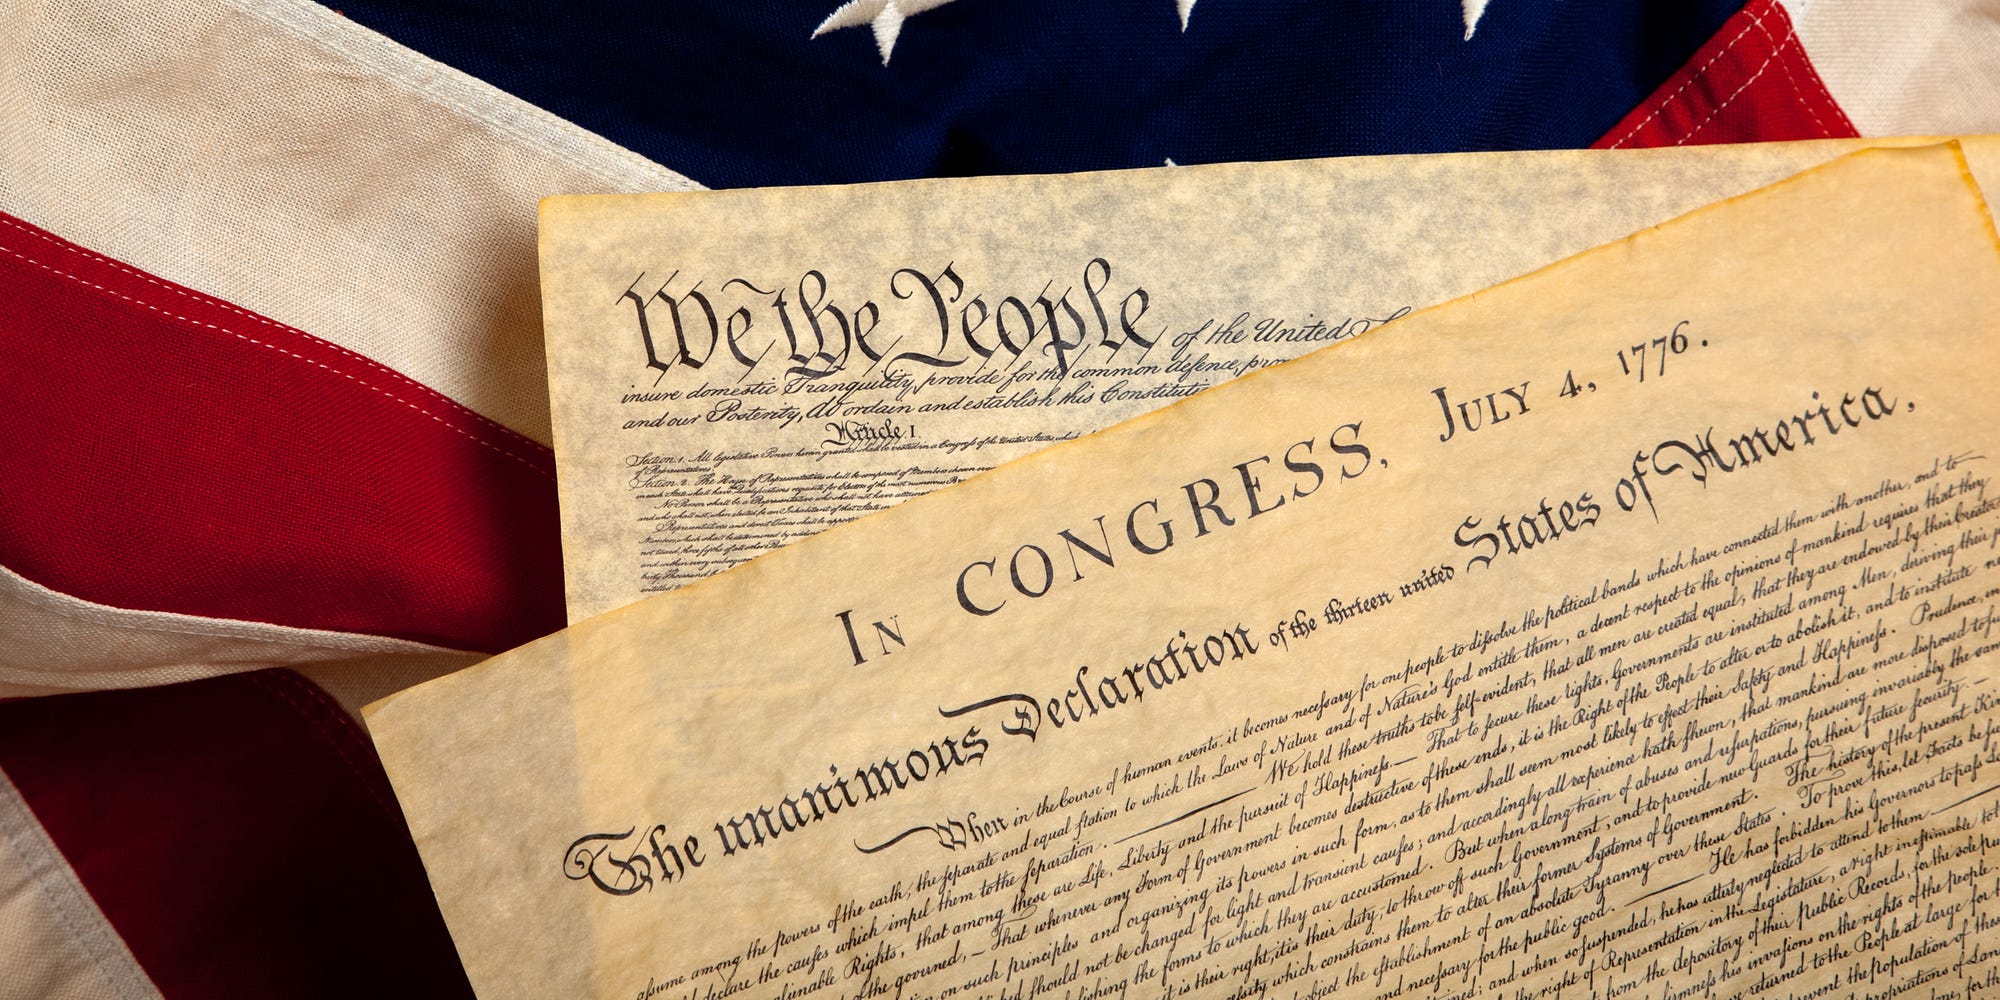 We the People of the United
insure domestic Tranquility, provide for the common defence,
and our Posterity, do ordain and establish this
Article. I.
Section. 1. All legislative Powers herein granted shall be vested in a Congress of the United States, which
of Representatives.
Section. 2. The House of Representatives shall be composed of Members chosen
in each State shall have Qualifications requisite for Electors of the most numerous
No Person shall be a Representative who shall not have attained
and who shall not, when elected, be an Inhabitant of that State in
Representatives and direct Taxes shall be
IN CONGRESS, JULY 4, 1776.
The unanimous Declaration of the thirteen united States of America.
When in the Course of human events, it becomes necessary for one people to dissolve the political bands which have connected them with another, and to
assume among the powers of the earth, the separate and equal station to which the Laws of Nature and of Nature's God entitle them, a decent respect to the opinions of mankind requires that they
declare the causes which impel them to the separation. We hold these truths to be self-evident, that all men are created equal, that they are endowed by their Creator
Rights, that among these are Life, Liberty and the pursuit of Happiness.— That to secure these rights, Governments are instituted among Men, deriving their
of the governed, — That whenever any Form of Government becomes destructive of these ends, it is the Right of the People to alter or to abolish it, and to institute
on such principles and organizing its powers in such form, as to them shall seem most likely to effect their Safety and Happiness. Prudence,
should not be changed for light and transient causes; and accordingly all experience hath shewn, that mankind are more disposed to
the forms to which they are accustomed. But when a long train of abuses and usurpations, pursuing invariably the
it is their right, it is their duty, to throw off such Government, and to provide new Guards for their future security.—
which constrains them to alter their former Systems of Government. The history of the present
object the establishment of an absolute Tyranny over these States. To prove this, let Facts be
and necessary for the public good. He has forbidden his Governors to pass
and when so suspended, he has utterly neglected to attend to them
right of Representation in the Legislature, a right inestimable to
from the depository of their Public Records, for the sole
his invasions on the rights of the people.
returned to the People at large for
prevent the Population of these
of